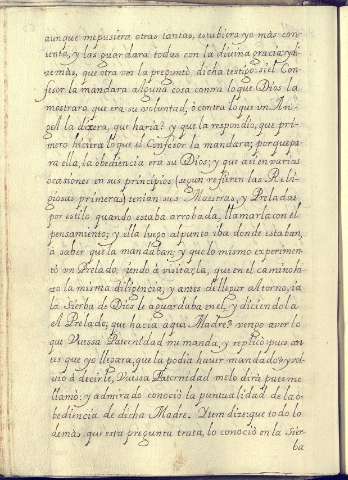 aunque me pusiera otras tantas, estubiera yo màs con-
tenta, y las guardara todas con la divina gracia; y à
demàs, que otra vez la preguntò dicha testigo: si el Con-
fesor la mandara alguna cosa contra lo que Dios la
mostrara que era su voluntad, ò contra lo que un An-
gel la dixera, que harìa? y que la respondìo, que pri-
mero hiciera lo que el Confesor la mandara; porque pa-
ra ella, la obediencia era su Dios; y que asi en varias
ocasiones en sus principios (segun refieren las Reli-
giosas primeras) tenìan sus Maestras, y Preladas
por estilo, quando estaba arrobada, llamarla con el
pensamiento; y ella luego al punto iba donde estaban,
à saber que la mandaban; y que lo mismo experimen-
tò un Prelado, iendo à visitarla, que en el camino hi-
zo la misma diligencia; y antes de llegar al torno, ià
la Sierba de Dios le aguardaba en el, y diciendola
el Prelado, que hacìa aqui Madre? vengo a ver lo
que Vuessa Paternidad me manda, y replicò: pues an-
tes que yo llegara, que la podìa haver mandado? y vol-
viò à decirle, Vuessa Paternidad me lo dirà pues me
llamò: y admirado conociò la puntualidad de la o-
bediencia de dicha Madre. Item dize: que todo lo
demàs, que esta pregunta trata, lo conociò en la Sier-
ba